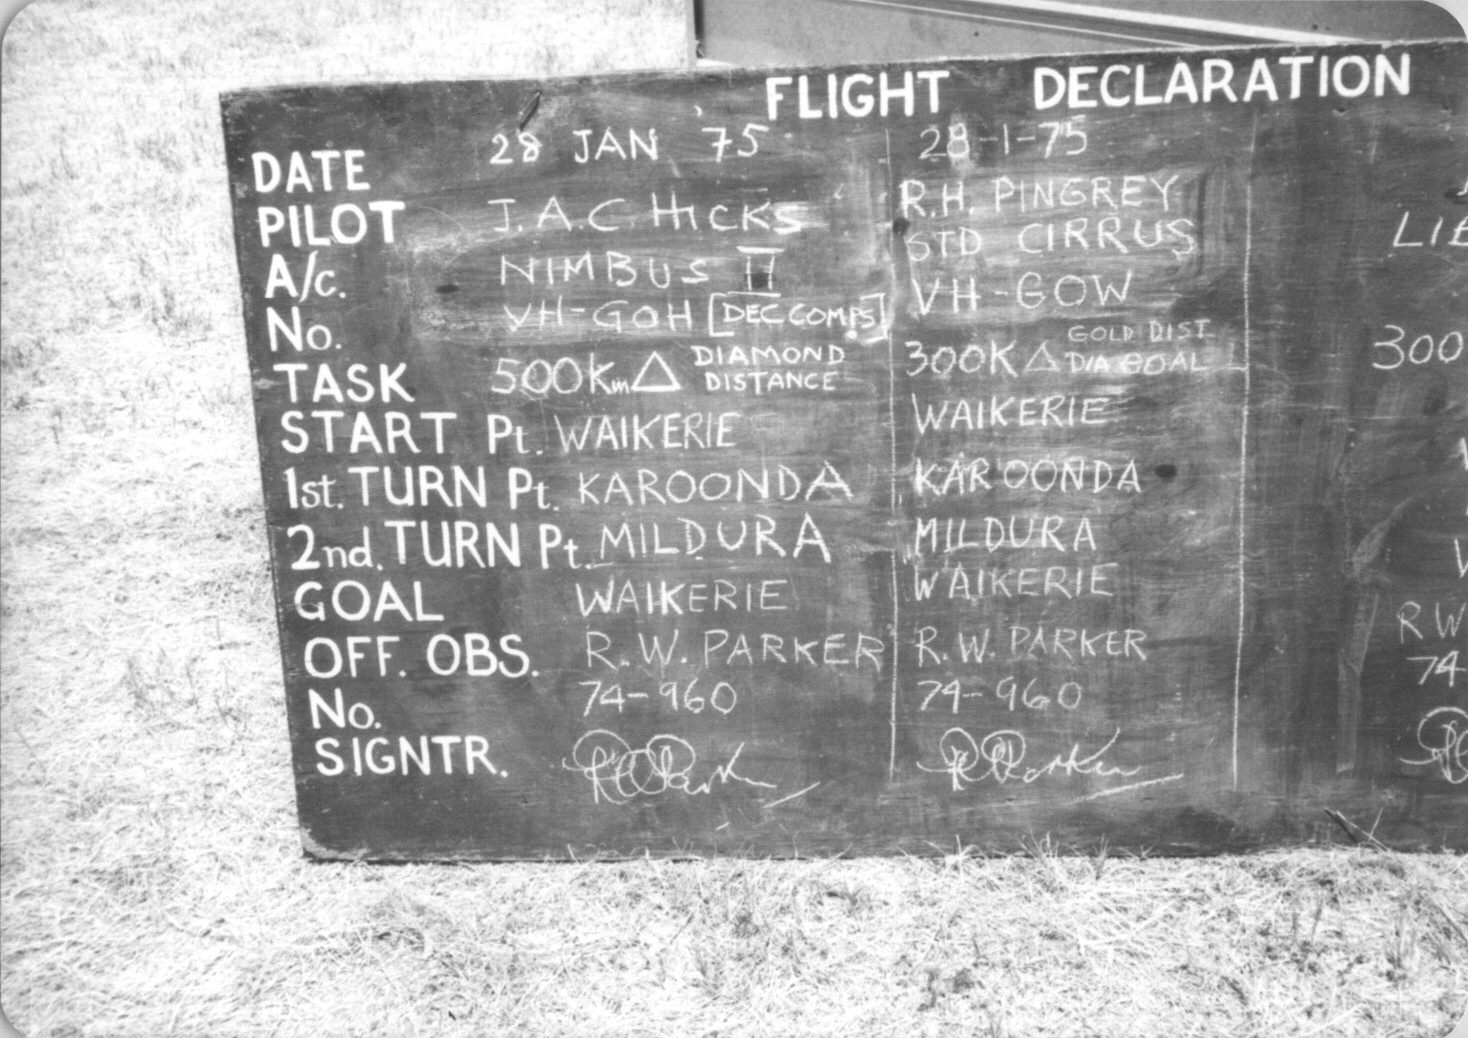 FLIGHT DECLARATION
DATE 28 JAN 75 28-1-75
PILOT J.A.C. HICKS R.H. PINGREY
A/c. NIMBUS II STD CIRRUS LIB
No. VH-GOH [DEC COMPS] VH-GOW
TASK 500Km △ DIAMOND DISTANCE 300K △ GOLD DIST DIA GOAL 300
START Pt. WAIKERIE WAIKERIE
1st. TURN Pt. KAROONDA KAROONDA
2nd. TURN Pt. MILDURA MILDURA
GOAL WAIKERIE WAIKERIE
OFF. OBS. R.W. PARKER R.W. PARKER RW
No. 74-960 74-960 74
SIGNTR. RWParker RWParker